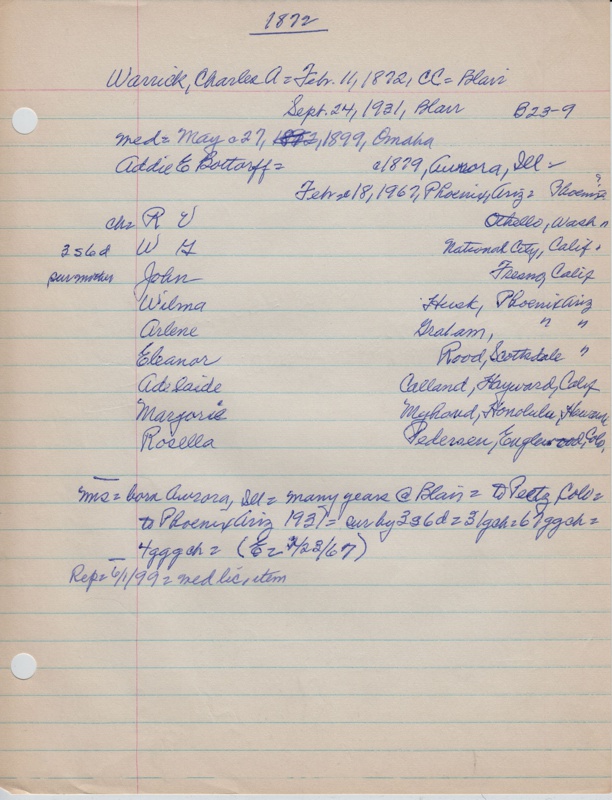 1872
Warrick, Charles A = Feb. 11, 1872, CC = Blair
Sept. 24, 1931, Blair B23-9
med = May c27, 1893, 1899, Omaha
Addie E Bottorff = c1879, Aurora, Ill =
Feb c18, 1967, Phoenix, Ariz = Phoenix ?
ch = R V Othello, Wash
3s6d W G National City, Calif
surmother John Fresno, Calif
Wilma Husk, Phoenix Ariz
Arlene Graham, " "
Eleanor Rood, Scottsdale "
Adelaide Calland, Hayward, Calif
Marjorie Honolulu, Hawaii
Rosella Pedersen, Englewood, Colo,
Mrs = born Aurora, Ill = many years @ Blair = to Peetz Colo =
to Phoenix Ariz 1937 = sur by 3s6d = 31gch = 67ggch =
4gggch = (E = 2/23/67)
Rep = 6/1/99 = med lic, item